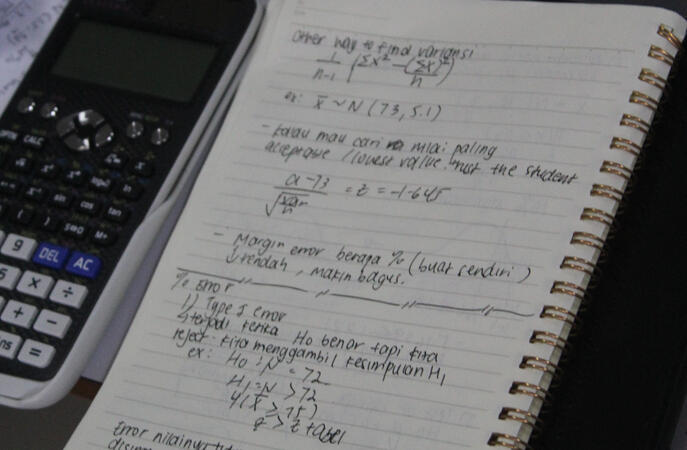 other way to find variansi
1/n-1 (Σx² - (Σx)²/n)
ex: X̄ ~ N (73, 5.1)
- kalau mau cari nilai paling
acceptable / lowest value the student
a - 73 / √ n = z = -1.645
- Margin error berapa % (buat sendiri)
↓ rendah, makin bagus.
% error
1) Type I error
↳ terjadi ketika Ho benar tapi kita
reject. kita mengambil kesimpulan H₁
ex: Ho : N = 72
H₁ = N > 72
(X̄ > 75)
z > z tabel
Error nilainya
9
DEL
AC
×
÷
+
−
=
( ) S⇔D M+
sin cos tan
ln
CALC